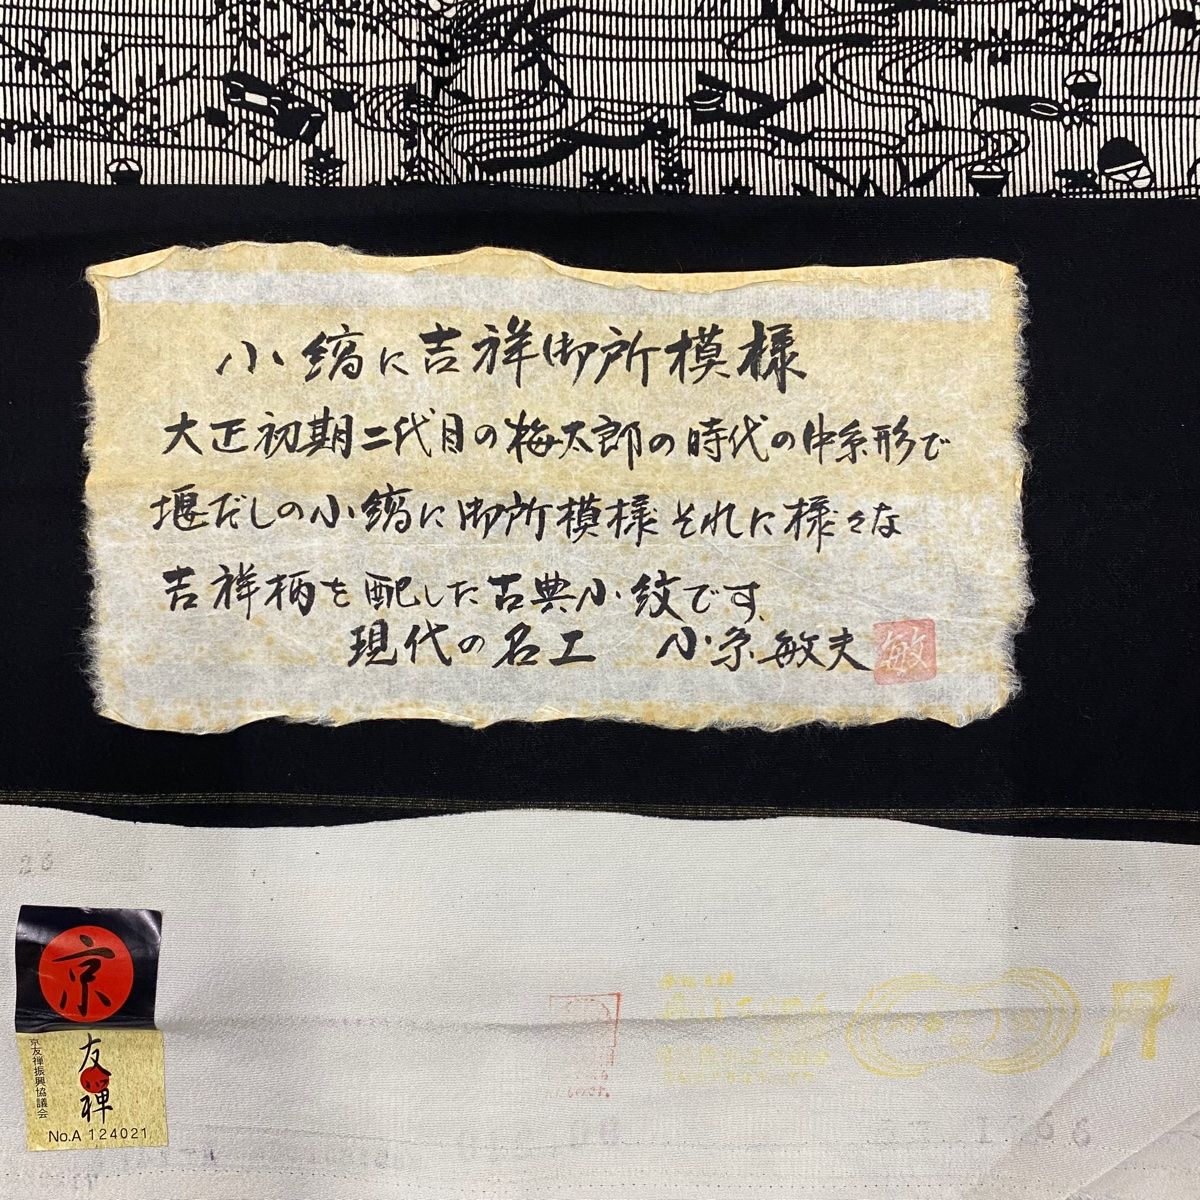 小縞に吉祥御所模様
大正初期二代目の梅太郎の時代の中糸形で
堰だしの小縞に御所模様それに様々な
吉祥柄を配した古典小紋です
現代の名工 小糸敏夫
敏
京
友禅
京友禅振興協議会
No.A 124021